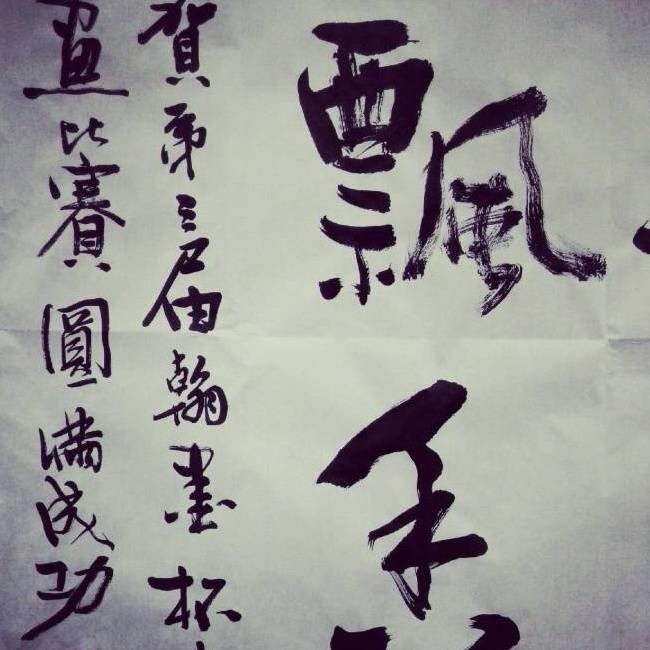 飄
賀第三届翰墨杯
畫比賽圓滿成功